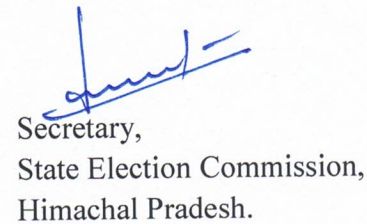 Secretary,
State Election Commission,
Himachal Pradesh.